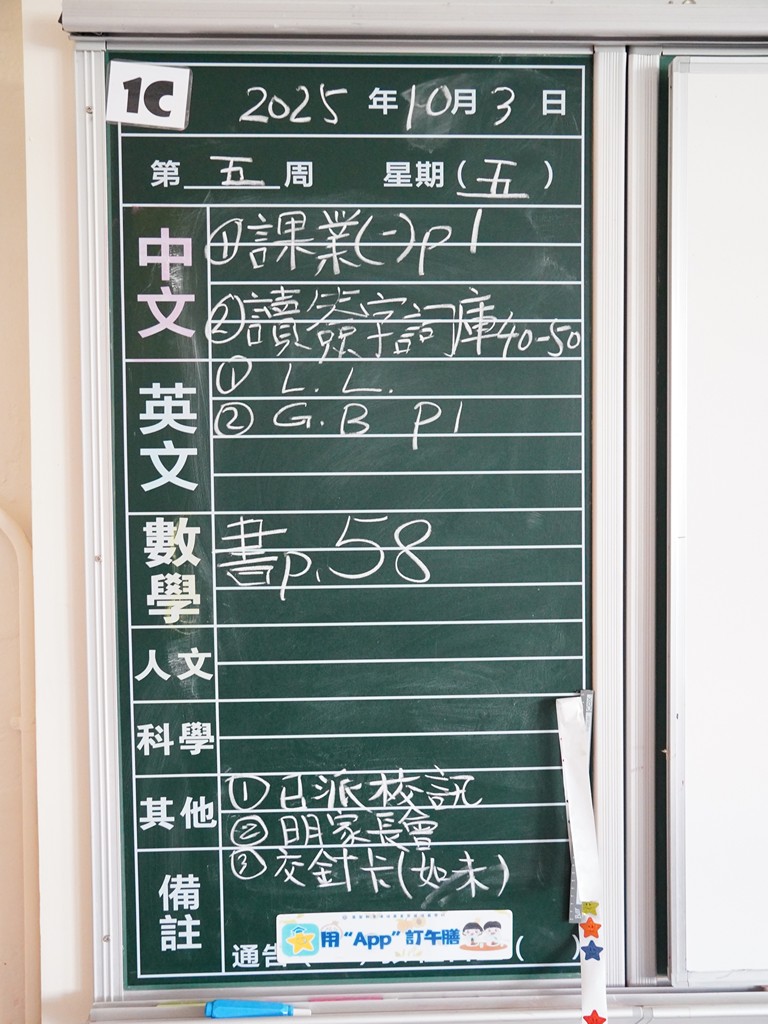 1C
2025年10月3日
第五周 星期(五)
中文
①課業(一)p1
②讀簽字詞庫40-50
英文
① L. L.
② G.B p1
數學
書p.58
人文
科學
其他
①已派校訊
②明家長會
備註
③交針卡(如未)
用“App”訂午膳
通告(
( )